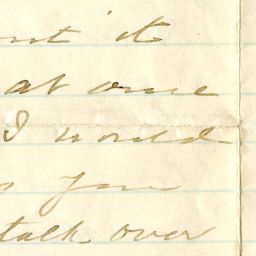 it
at once
I would
you
talk over